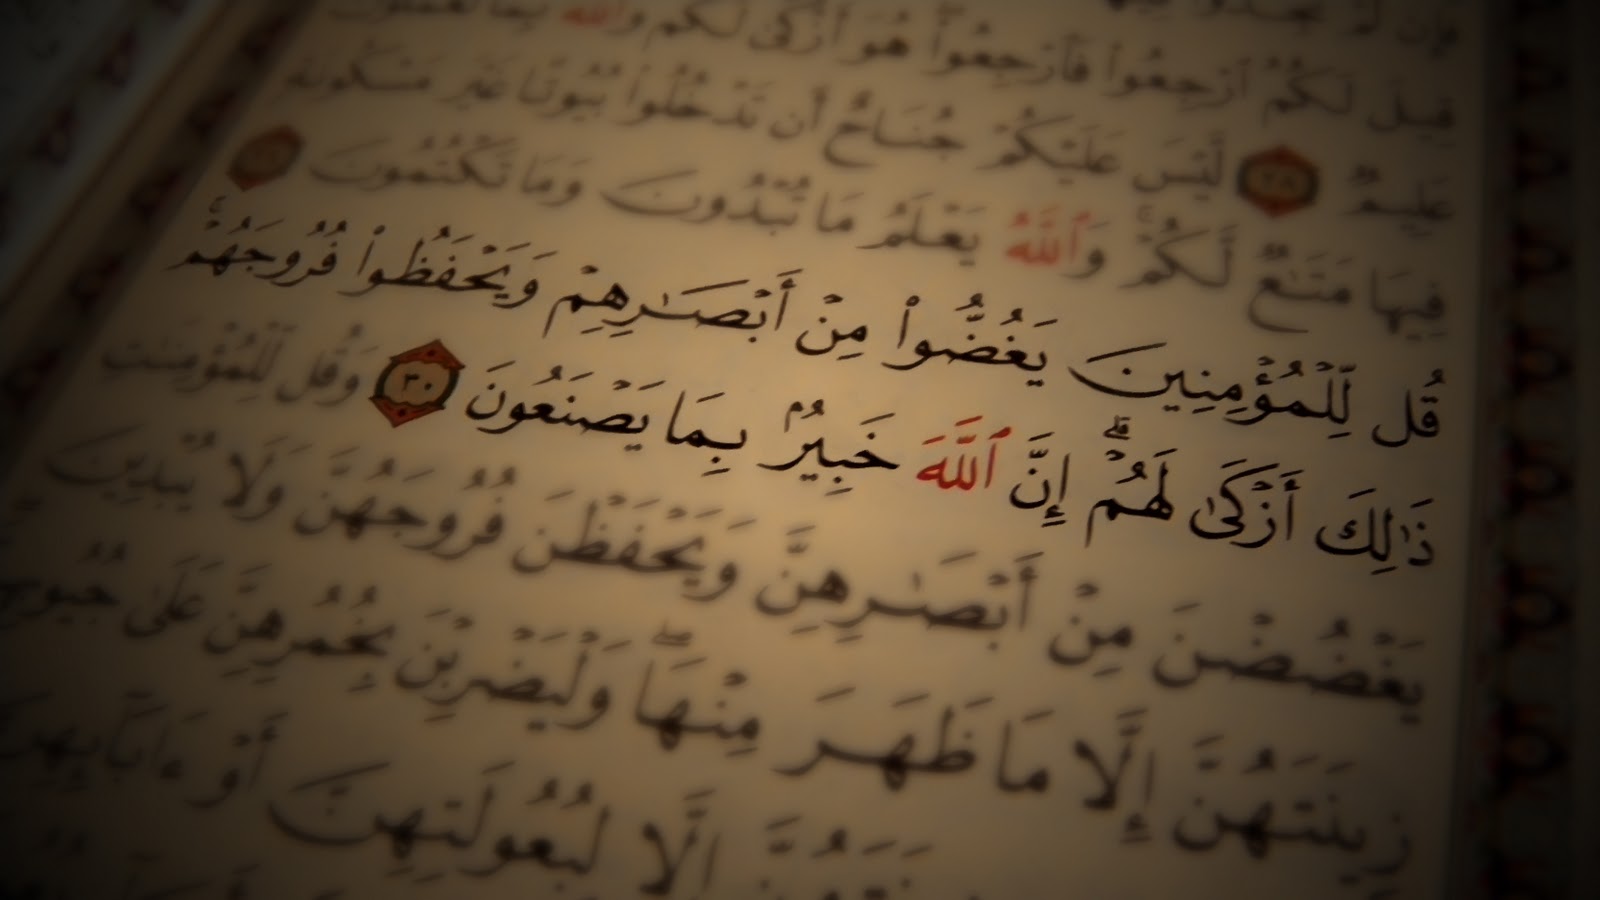 قِيلَ لَكُمُ ٱرْجِعُوا۟ فَٱرْجِعُوا۟ هُوَ أَزْكَىٰ لَكُمْ وَٱللَّهُ بِمَا تَعْمَلُونَ
عَلِيمٌ ٢٨ لَّيْسَ عَلَيْكُمْ جُنَاحٌ أَن تَدْخُلُوا۟ بُيُوتًا غَيْرَ مَسْكُونَةٍ
فِيهَا مَتَـٰعٌ لَّكُمْ ۚ وَٱللَّهُ يَعْلَمُ مَا تُبْدُونَ وَمَا تَكْتُمُونَ
قُل لِّلْمُؤْمِنِينَ يَغُضُّوا۟ مِنْ أَبْصَـٰرِهِمْ وَيَحْفَظُوا۟ فُرُوجَهُمْ ۚ
ذَٰلِكَ أَزْكَىٰ لَهُمْ ۗ إِنَّ ٱللَّهَ خَبِيرٌۢ بِمَا يَصْنَعُونَ ٣٠ وَقُل لِّلْمُؤْمِنَـٰتِ
يَغْضُضْنَ مِنْ أَبْصَـٰرِهِنَّ وَيَحْفَظْنَ فُرُوجَهُنَّ وَلَا يُبْدِينَ
زِينَتَهُنَّ إِلَّا مَا ظَهَرَ مِنْهَا ۖ وَلْيَضْرِبْنَ بِخُمُرِهِنَّ عَلَىٰ
إِلَّا لِبُعُولَتِهِنَّ أَوْ ءَابَآئِهِنَّ